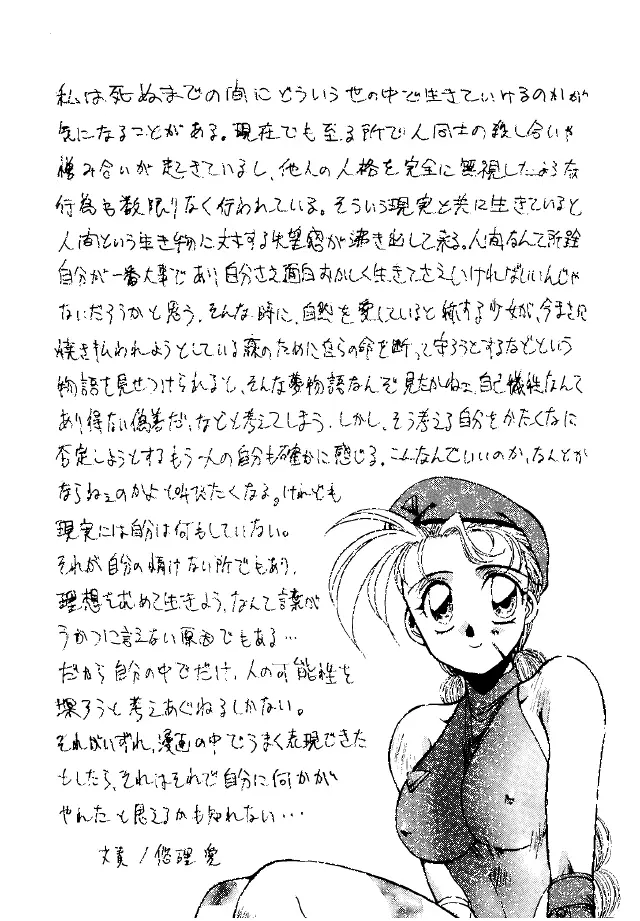 私は死ぬまでの間にどういう世の中で生きていけるのかが
気になることがある。現在でも至る所で人間同士の殺し合いや
憎み合いが起きているし、他人の人格を完全に無視したような
行為も数限りなく行われている。そういう現実と共に生きていると
人間という生き物に対する失望感が沸き出して来る。人間なんて所詮
自分が一番大事であり、自分さえ面白おかしく生きてさえいければいいんじゃ
ないだろうかと思う。そんな時に、自然を愛していると称する少女が、今まさに
焼き払われようとしている森のために自らの命を断って守ろうとするなどという
物語を見せつけられると、そんな夢物語なんぞ見たかねェ、自己犠牲なんて
あり得ない偽善だ、などと考えてしまう。しかし、そう考える自分をかたくなに
否定しようとするもう一人の自分も確かに感じる。こんなんでいいのか、なんとか
ならねェのかよと叫びたくなる。けれども
現実には自分は何もしていない。
それが自分の情けない所でもあり、
理想を求めて生きよう、なんて言葉が
うかつに言えない原因でもある…
だから自分の中でだけ、人の可能性を
探ろうと考えあぐねるしかない。
それがいずれ、漫画の中でうまく表現できた
としたら、それはそれで自分に何かが
やれたと思えるかも知れない…
文責/悠理愛